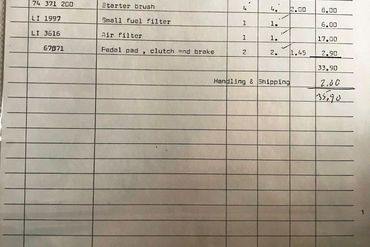 74 371 200 Starter brush 4 4. 2.00 8.00
LI 1997 Small fuel filter 1 1. 6.00
LI 3616 Air filter 1 1. 17.00
67071 Pedal pad , clutch and brake 2 2. 1.45 2.90
33.90
Handling & Shipping 2.00
35,90